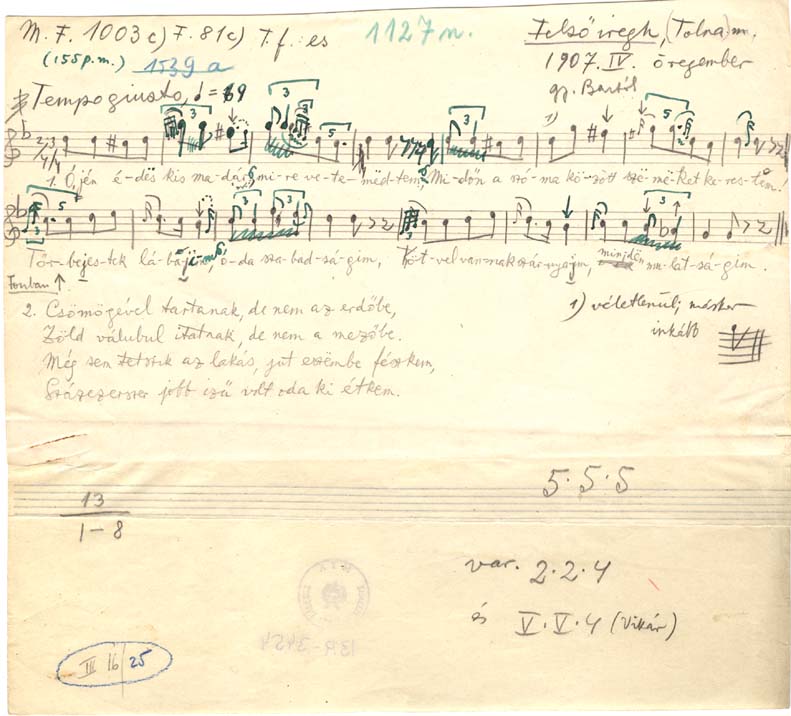 M. F. 1003 c) F. 81 c) T. f.: es 1127 n. Felső iregh, (Tolna) m.
(155 p. m.) 1539 a 1907. IV. öregember
Tempo giusto, gy. Bartók
1)
1. Ó, jén é-dës kis ma-da-ram, mi-re ve-te-mëd-tem, Mi-dőn a szá-ma kö-zött szë-më-ket ke-res-tem!
Tőr-be jes-tek lá-ba-jim, ó-da sza-bad-sá-gim, Köt-vel van-nak szár-nya-jm, minden mu-lat-sá-gim.
Fonban ↑
2. Csömögével tartanak, de nem az erdőbe, 1) véletlenül; máskor
Zöld válubul itatnak, de nem a mezőbe. inkább
Még sem tetszik az lakás, jut eszëmbe fészkem,
Százezerszer jobb izü volt oda ki étkem.
5·5·5
13
1–8
var. 2·2·4
és V·V·4 (Vikár)
III 16/25